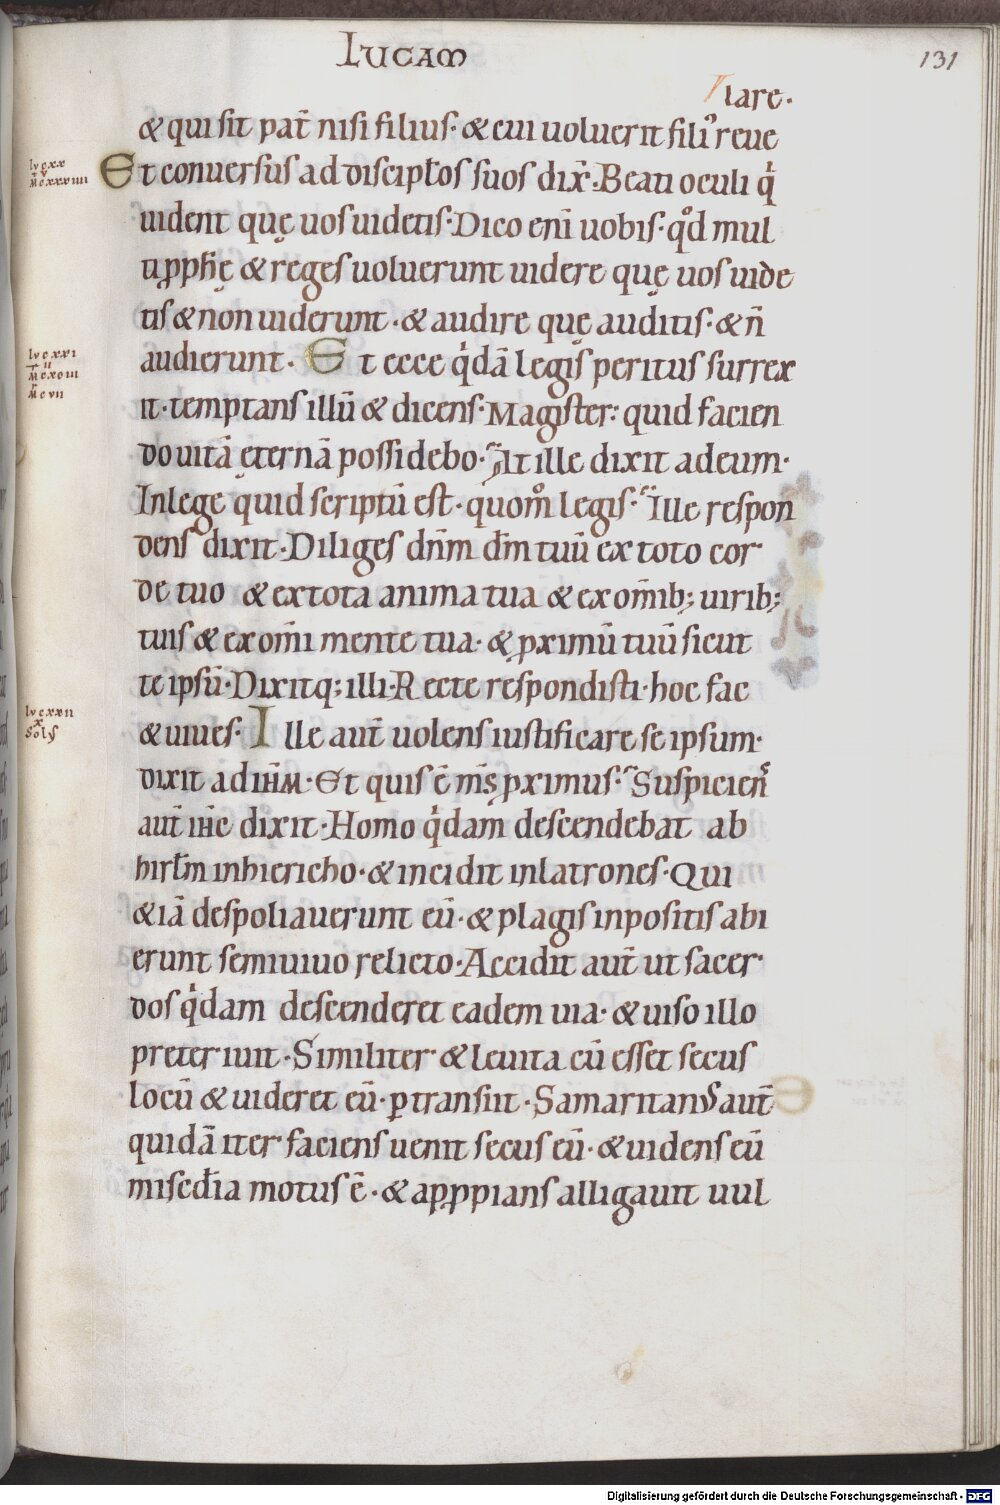 LUCAM
131
lare·
& qui sit pat̄ nisi filius· & cui uoluerit fili᷒ reue
Et conuersus ad discipl̄os suos dix̄·Beati oculi q̇
uident quę uos uidetis·Dico enī uobis·qd̊ mul
ti ꝓph̄ę & reges uoluerunt uidere quę uos uide
tis & non uiderunt·& audire quę auditis·& n̄
audierunt· Et ecce q̇dā legis peritus surrex
it·temptans illū & dicens·Magister: quid facien
do uitā ęternā possidebo· At ille dixit ad eum·
In lege quid scriptū est·quom̊ legis· Ille respon
dens dixit·Diliges dn̄m dm̄ tuū ex toto cor
de tuo & ex tota anima tua & ex om̄ib; uirib;
tuis & ex om̄i mente tua·& ꝓximū tuū sicut
te ipsū·Dixitq; illi·Recte respondisti·hoc fac
& uiues· Ille aut̄ uolens iustificare se ipsum·
dixit ad ih̄m·Et quis ē m̄s ꝓximus· Suspiciens
aut̄ ih̄c dixit·Homo q̇dam descendebat ab
hirl̄m in hiericho·& incidit in latrones·Qui
& iā despoliauerunt eū·& plagis inpositis abi
erunt semiuiuo relicto·Accidit aut̄ ut sacer
dos q̇dam descenderet eadem uia·& uiso illo
preteriuit·Similiter & leuita cū esset secus
locū & uideret eū·ꝑtransiit·Samaritan᷒ aut̄
quidā iter faciens uenit secus eū·& uidens eū
misc̄dia motus ē·& apꝓpians alligauit uul
Digitalisierung gefördert durch die Deutsche Forschungsgemeinschaft - DFG